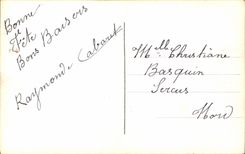 Bonne
Fête
Bons Baisers
Raymonde Cabaret
Mlle Christiane
Basquin
Sercus
Nord